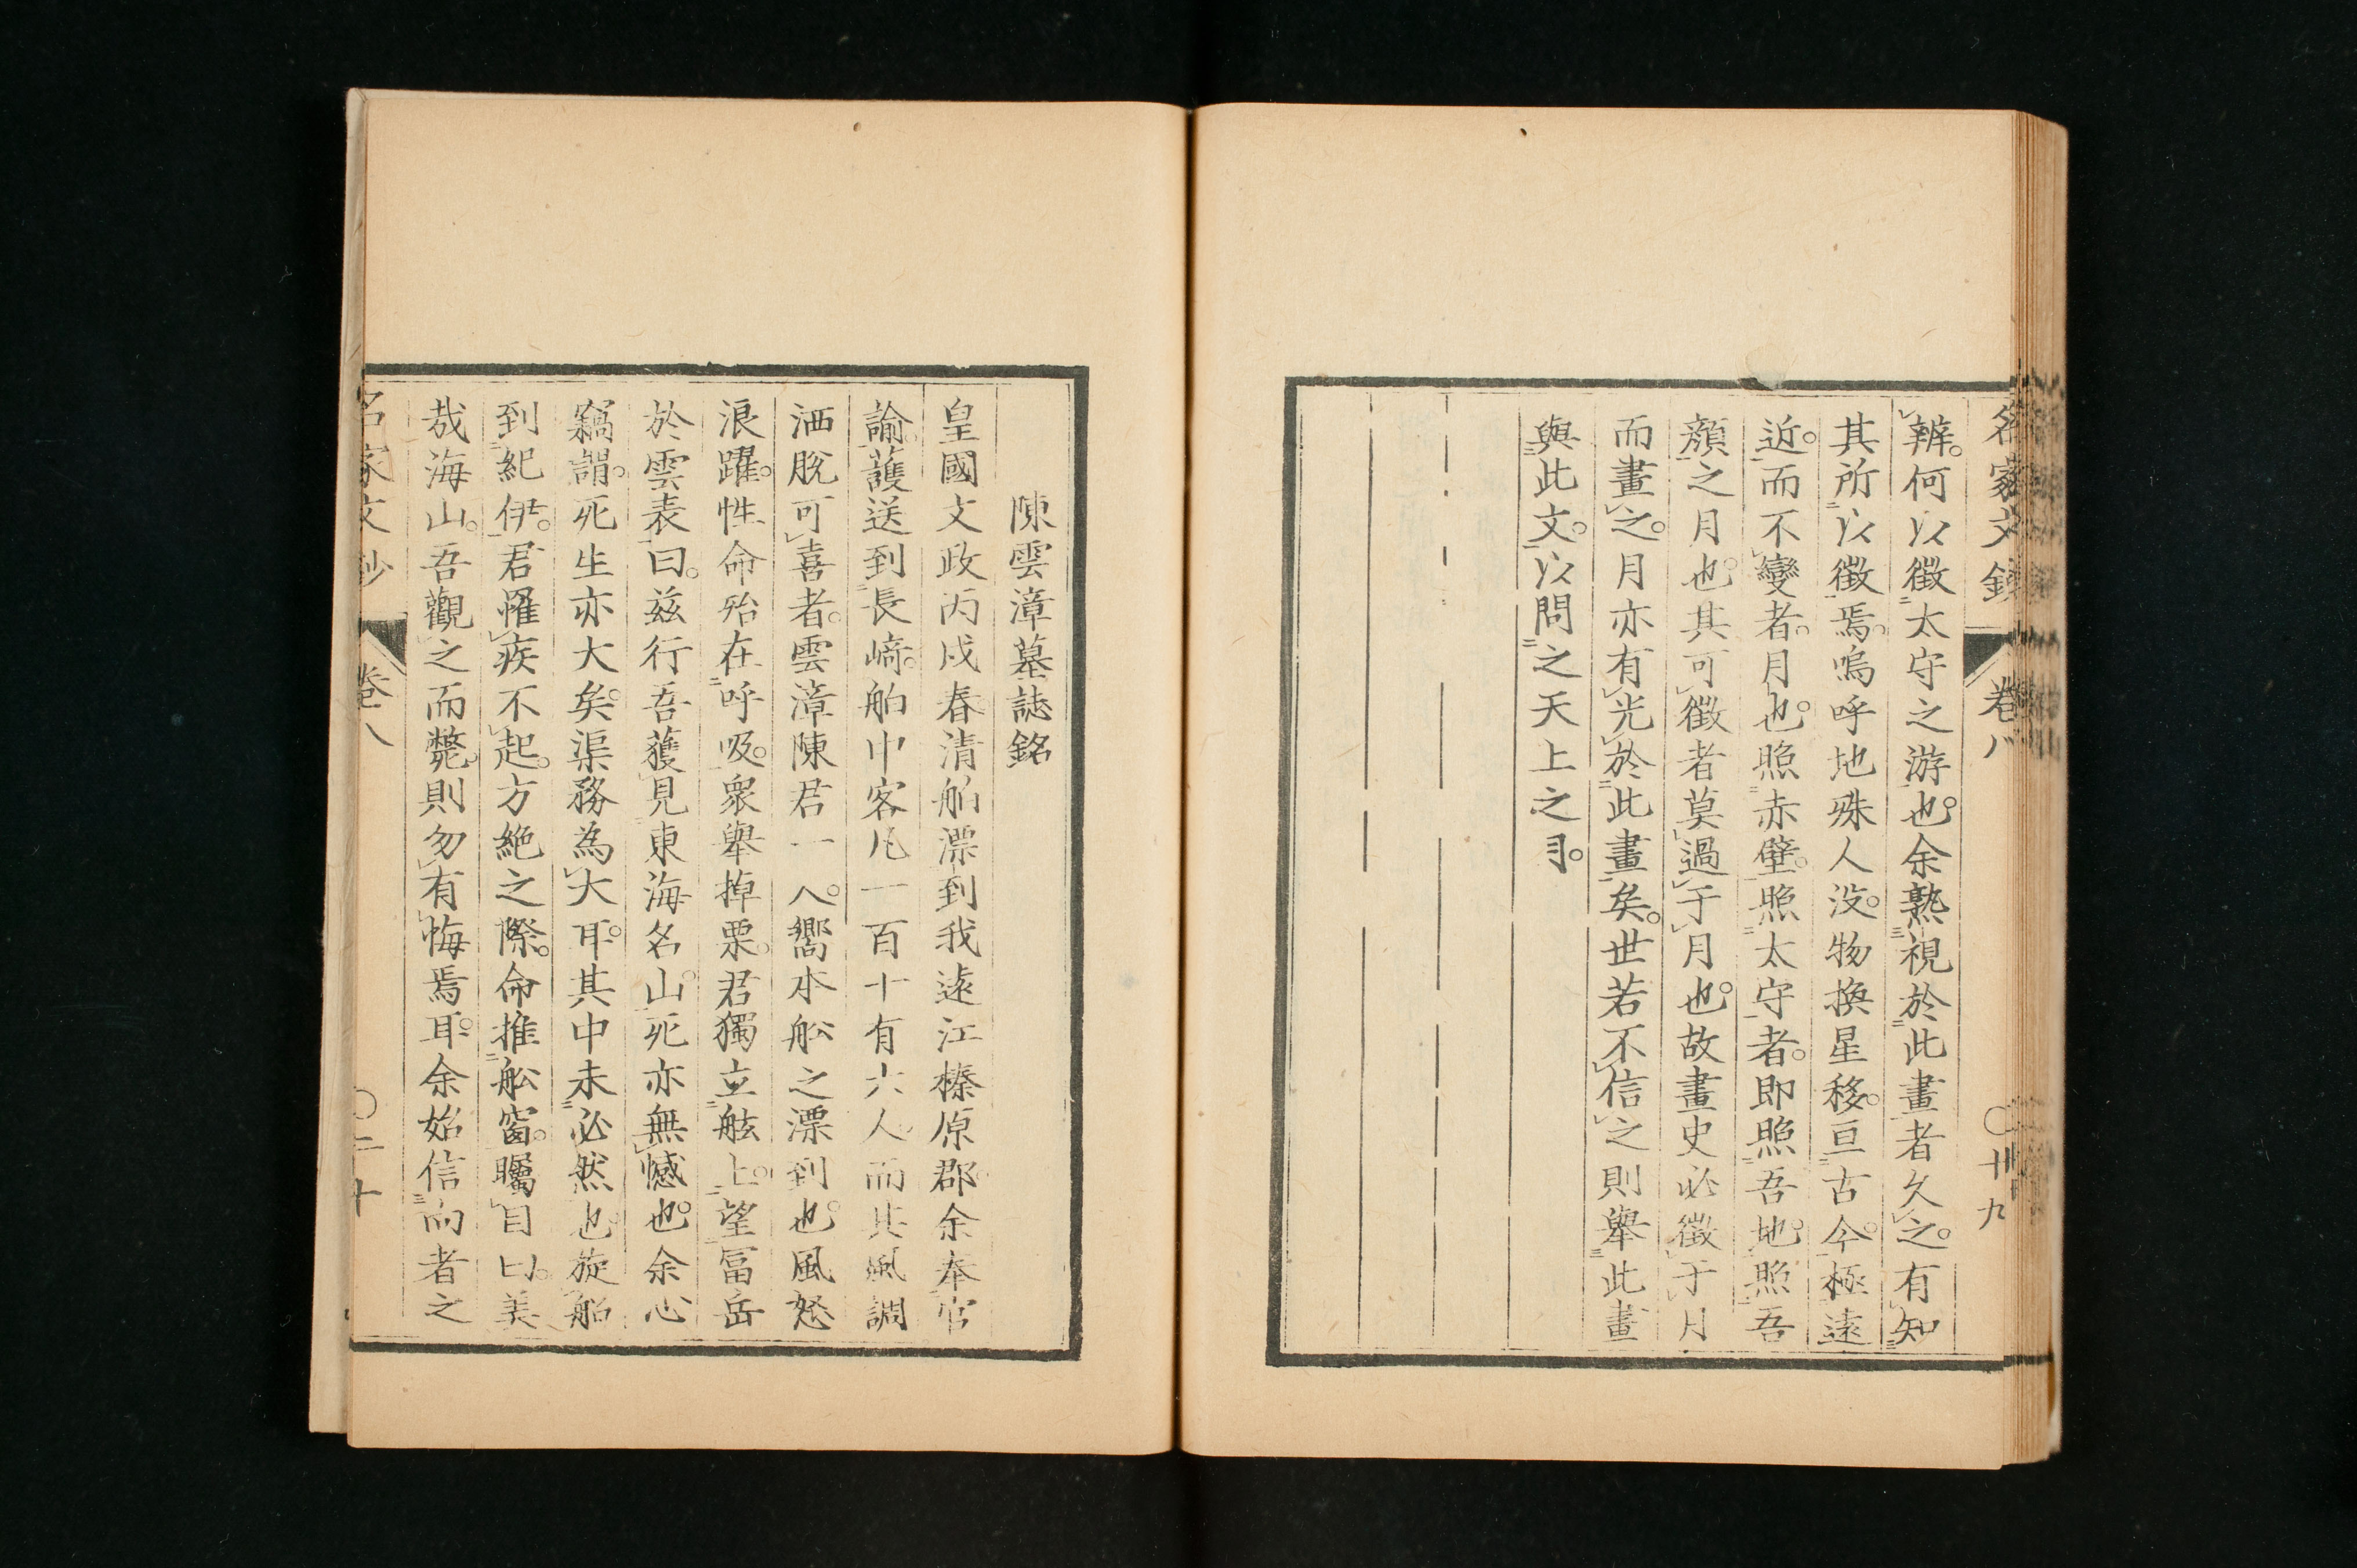 名家文鈔 卷八 〇十九
辨。何以徵太守之游也。余熟視於此畫者久之。有知
其所以徵焉。嗚呼地殊人没。物換星移。亘古今。極遠
近。而不變者。月也。照赤壁。照太守者。即照吾地。照吾
顏之月也。其可徵者莫過于月也。故畫史必徵于月
而畫之。月亦有光於此畫矣。世若不信之則舉此畫
與此文。以問之天上之月。
陳雲漳墓誌銘
皇國文政丙戌春清舶漂到我遠江榛原郡余奉官
諭。護送到長崎。舶中客凡一百十有六人而其風調
洒脫可喜者。雲漳陳君一人。嚮本舩之漂到也。風怒
浪躍。性命殆在呼吸。衆舉掉栗。君獨立舷上。望富岳
於雲表曰。兹行吾獲見東海名山。死亦無憾也。余心
竊謂。死生亦大矣。渠務為大耳。其中未必然也。旋船
到紀伊。君罹疾不起。方絶之際。命推舩窗。矚目曰。美
哉海山。吾觀之而斃。則勿有悔焉耳。余始信向者之
名家文鈔 卷八 〇二十